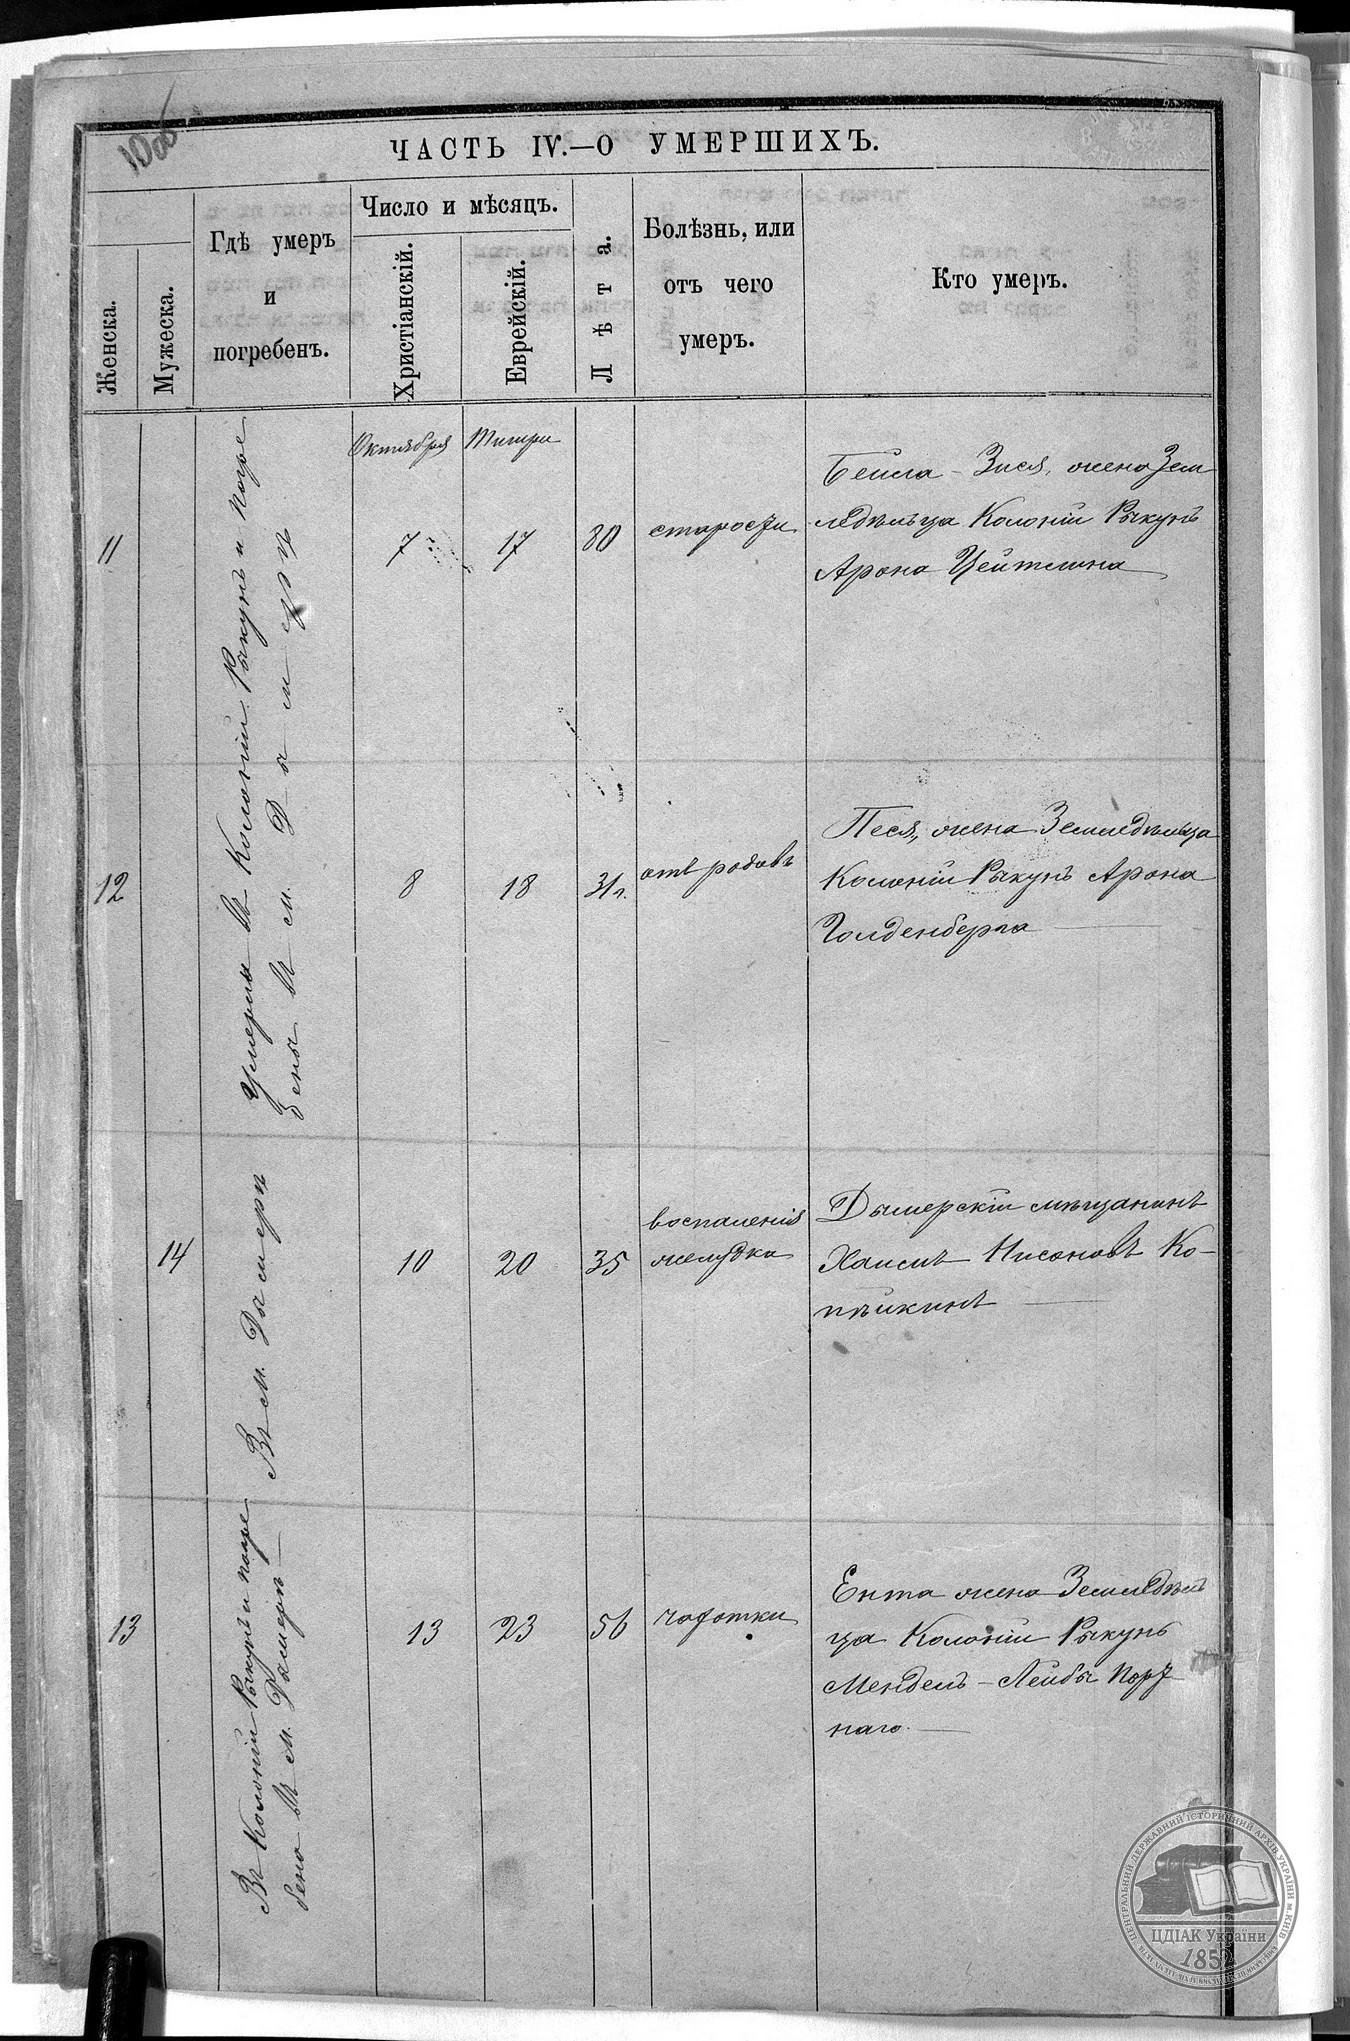 10об
ЧАСТЬ IV.—О УМЕРШИХЪ.
Женска.
Мужеска.
Гдѣ умеръ
и
погребенъ.
Число и мѣсяцъ.
Христіанскій.
Еврейскій.
Лѣта.
Болѣзнь, или
отъ чего
умеръ.
Кто умеръ.
11
Умерли въ Колоніи Рыкунъ и погре
бены въ м. Дымерѣ
Октября
7
Тишри
17
80
старости
Бейла - Зися, жена Зем
ледѣльца Колоніи Рыкунъ
Арона Цейтлина
12
8
18
31 л.
отъ родовъ
Песя, жена Земледѣльца
Колоніи Рыкунъ Арона
Голденберга
14
Въ м. Дымерѣ
10
20
35
воспаленія
желудка
Дымерскій мѣщанинъ
Хаимъ Нисоновъ Ко-
пѣйкинъ
13
Въ Колоніи Рыкунъ и погре
бена въ м. Дымерѣ
13
23
56
чахотки
Ента жена Земледѣль
ца Колоніи Рыкунъ
Мендель - Лейбы Порт
наго
ЦЕНТРАЛЬНИЙ ДЕРЖАВНИЙ ІСТОРИЧНИЙ АРХІВ УКРАЇНИ м. КИЇВ
ЦДІАК України
1852